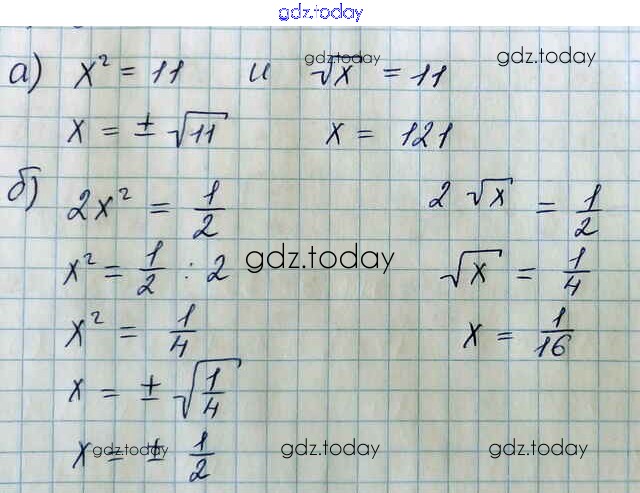 gdz.today
а) x² = 11 и √x = 11
gdz.today
gdz.today
x = ± √11 x = 121
б) 2x² = 1/2 2 √x = 1/2
x² = 1/2 : 2 √x = 1/4
gdz.today
x² = 1/4 x = 1/16
x = ± √1/4
x = ± 1/2
gdz.today
gdz.today
gdz.today